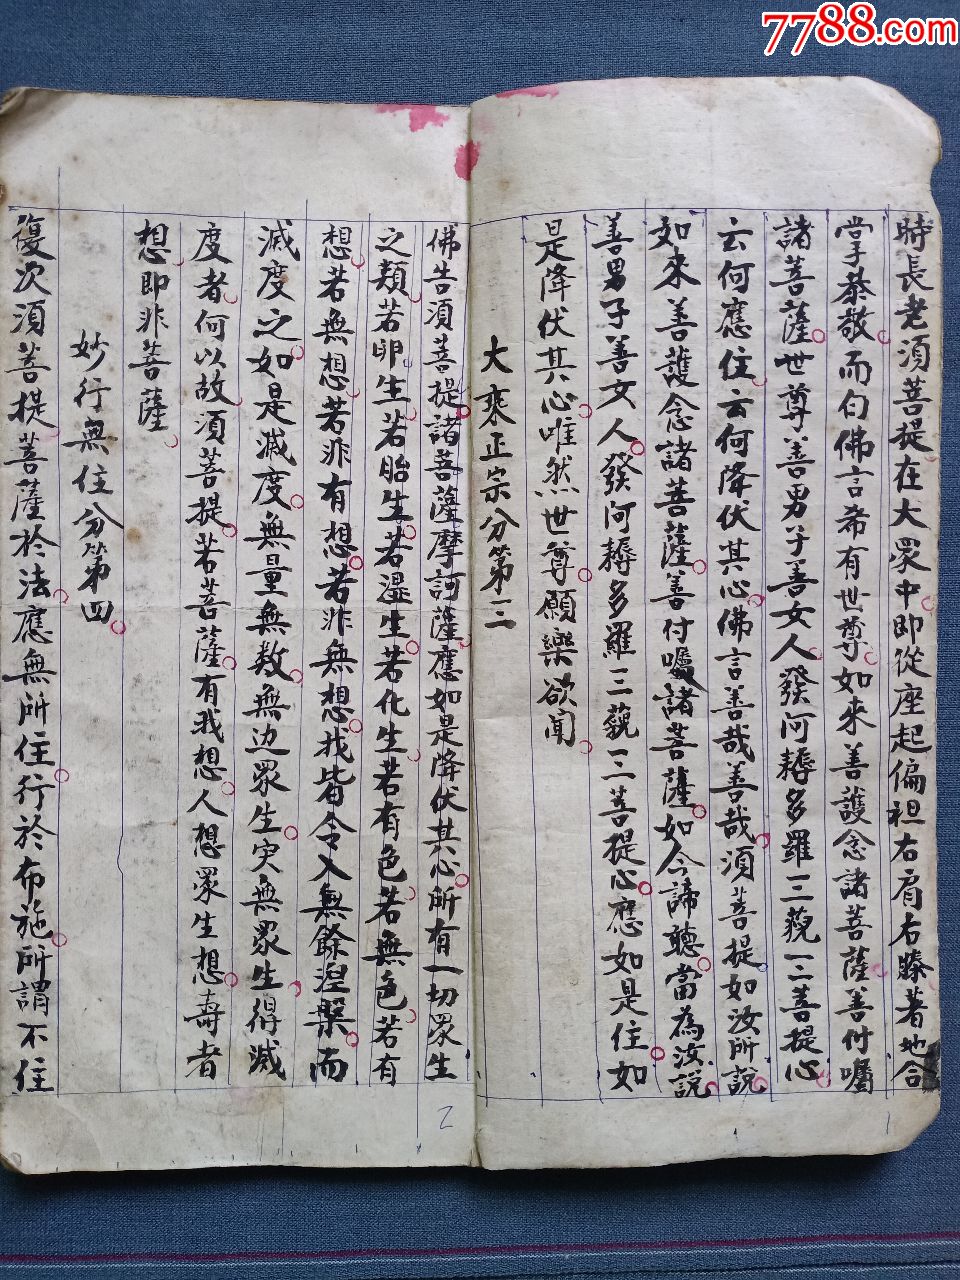 7788.com
時長老須菩提在大眾中即從座起偏袒右肩右膝著地合
掌恭敬而白佛言希有世尊如來善護念諸菩薩善付囑
諸菩薩世尊善男子善女人發阿耨多羅三藐三菩提心
云何應住云何降伏其心佛言善哉善哉須菩提如汝所說
如來善護念諸菩薩善付囑諸菩薩如今諦聽當為汝說
善男子善女人發阿耨多羅三藐三菩提心應如是住如
是降伏其心唯然世尊願樂欲聞
大乘正宗分第三
佛告須菩提諸菩薩摩訶薩應如是降伏其心所有一切眾生
之類若卵生若胎生若湿生若化生若有色若無色若有
想若無想若非有想若非無想我皆令入無餘涅槃而
滅度之如是滅度無量無数無边眾生实無眾生得滅
度者何以故須菩提若菩薩有我想人想眾生想壽者
想即非菩薩
妙行無住分第四
復次須菩提菩薩於法應無所住行於布施所謂不住
1
2